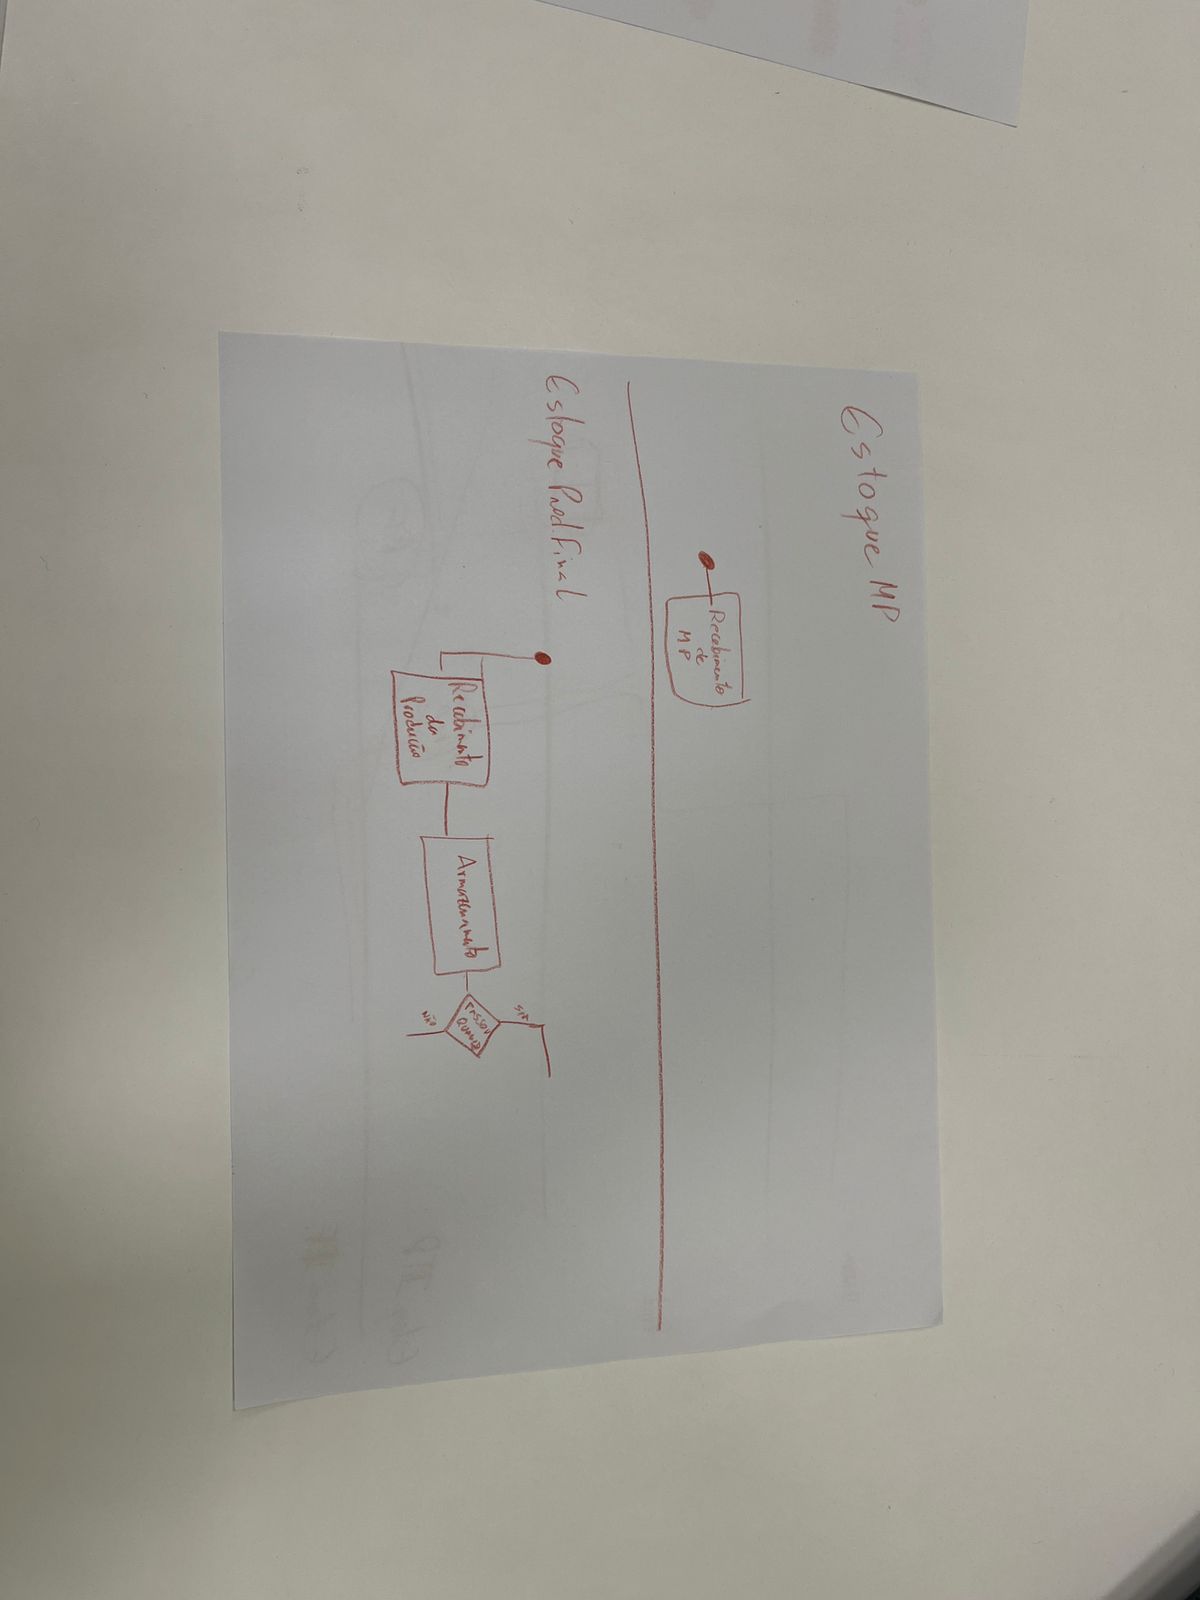 Estoque MP
Recebimento
de
MP
Estoque Prod. Final
Recebimento
da
Produção
Armazenamento
PASSOU
SIM
NÃO